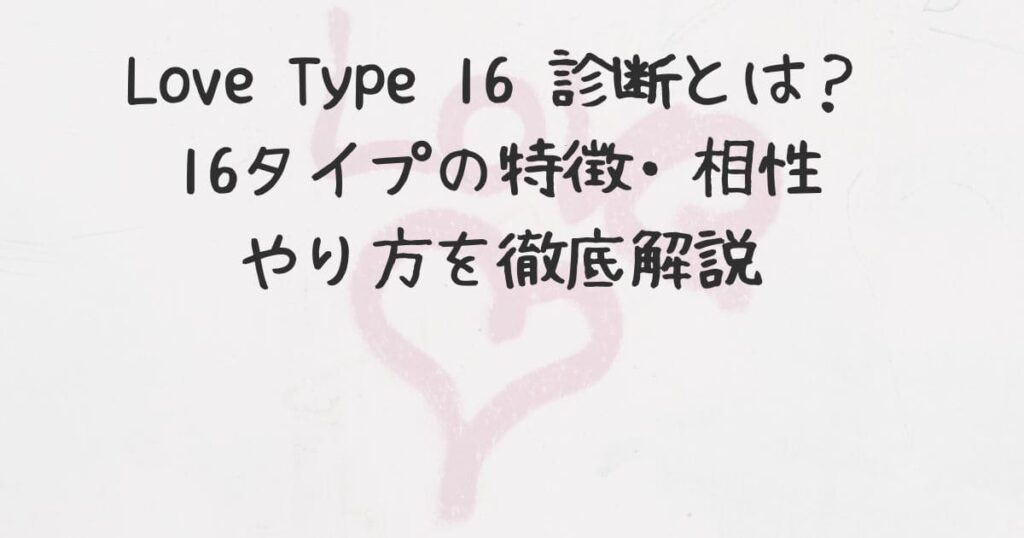 Love Type 16 診断とは?
16タイプの特徴・相性
やり方を徹底解説